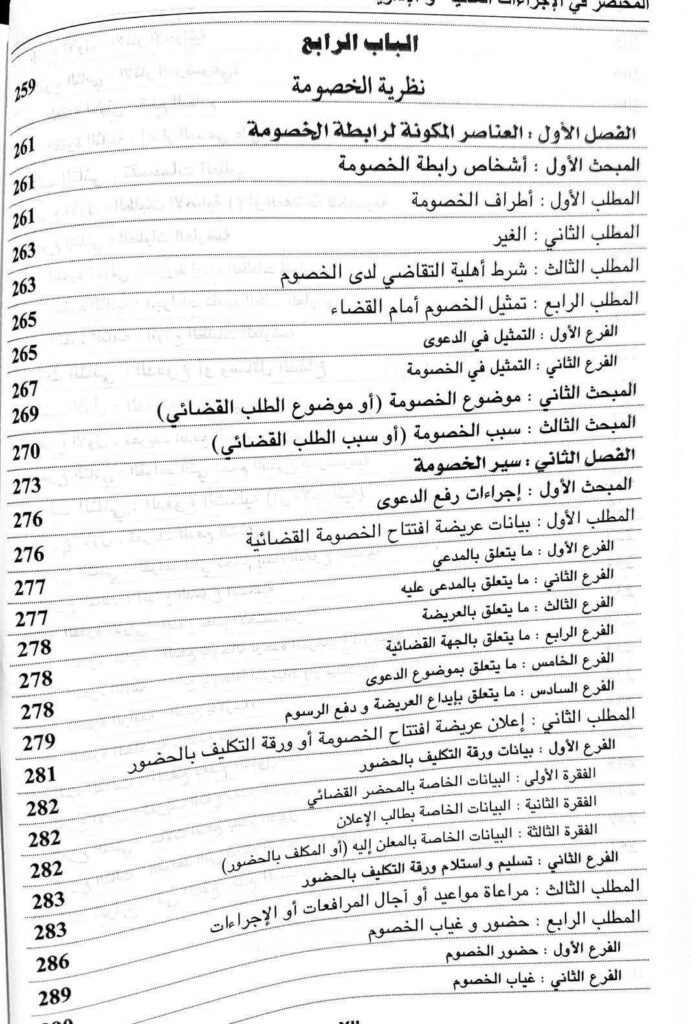 المختصر في الإجراءات المدنية و الإدارية
الباب الرابع
نظرية الخصومة 259
الفصل الأول : العناصر المكونة لرابطة الخصومة 261
المبحث الأول : أشخاص رابطة الخصومة 261
المطلب الأول : أطراف الخصومة 261
المطلب الثاني : الغير 263
المطلب الثالث : شرط أهلية التقاضي لدى الخصوم 263
المطلب الرابع : تمثيل الخصوم أمام القضاء 265
الفرع الأول : التمثيل في الدعوى 265
الفرع الثاني : التمثيل في الخصومة 267
المبحث الثاني : موضوع الخصومة (أو موضوع الطلب القضائي) 269
المبحث الثالث : سبب الخصومة (أو سبب الطلب القضائي) 270
الفصل الثاني : سير الخصومة 273
المبحث الأول : إجراءات رفع الدعوى 276
المطلب الأول : بيانات عريضة افتتاح الخصومة القضائية 276
الفرع الأول : ما يتعلق بالمدعي 277
الفرع الثاني : ما يتعلق بالمدعى عليه 277
الفرع الثالث : ما يتعلق بالعريضة 278
الفرع الرابع : ما يتعلق بالجهة القضائية 278
الفرع الخامس : ما يتعلق بموضوع الدعوى 278
الفرع السادس : ما يتعلق بإيداع العريضة و دفع الرسوم 279
المطلب الثاني : إعلان عريضة افتتاح الخصومة أو ورقة التكليف بالحضور 281
الفرع الأول : بيانات ورقة التكليف بالحضور 282
الفقرة الأولى : البيانات الخاصة بالمحضر القضائي 282
الفقرة الثانية : البيانات الخاصة بطالب الإعلان 282
الفقرة الثالثة : البيانات الخاصة بالمعلن إليه (أو المكلف بالحضور) 283
الفرع الثاني : تسليم و استلام ورقة التكليف بالحضور 283
المطلب الثالث : مراعاة مواعيد أو آجال المرافعات أو الإجراءات 286
المطلب الرابع : حضور و غياب الخصوم 289
الفرع الأول : حضور الخصوم
الفرع الثاني : غياب الخصوم
XII